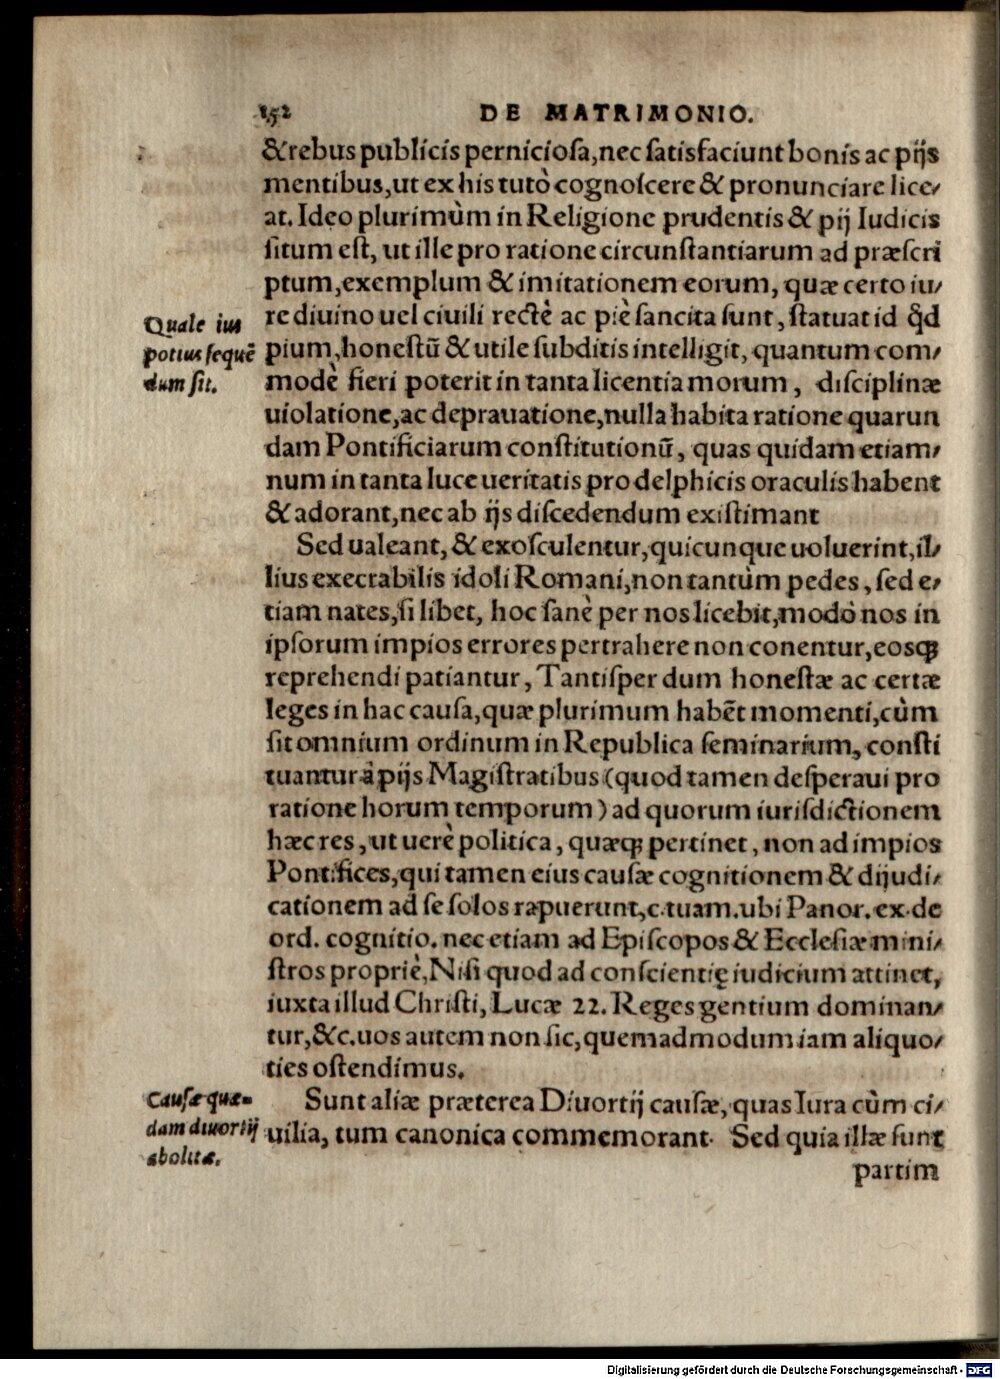 152 DE MATRIMONIO.
&rebus publicis perniciosa,nec satisfaciunt bonis ac pijs
mentibus,ut ex his tutò cognoscere & pronunciare lice/
at. Ideo plurimùm in Religione prudentis & pij Iudicis
situm est, ut ille pro ratione circunstantiarum ad præscri
ptum,exemplum & imitationem eorum, quæ certo iu/
Quale ius
re diuino uel ciuili rectè ac piè sancita sunt, statuat id qd̃
potius sequẽ
pium,honestũ & utile subditis intelligit, quantum com/
dum sit.
modè fieri poterit in tanta licentia morum, disciplinæ
uiolatione,ac deprauatione,nulla habita ratione quarun
dam Pontificiarum constitutionũ, quas quidam etiam/
num in tanta luce ueritatis pro delphicis oraculis habent
& adorant,nec ab ijs discedendum existimant
Sed ualeant, & exosculentur,quicunque uoluerint,il/
lius execrabilis idoli Romani,non tantùm pedes, sed e/
tiam nates,si libet, hoc sanè per nos licebit,modò nos in
ipsorum impios errores pertrahere non conentur,eosq;
reprehendi patiantur, Tantisper dum honestæ ac certæ
leges in hac causa,quæ plurimum habẽt momenti,cùm
sit omnium ordinum in Republica seminarium, consti
tuantur à pijs Magistratibus (quod tamen desperaui pro
ratione horum temporum) ad quorum iurisdictionem
hæc res, ut uerè politica, quæq; pertinet, non ad impios
Pontifices,qui tamen eius causæ cognitionem & dijudi/
cationem ad se solos rapuerunt,c.tuam.ubi Panor.ex.de
ord. cognitio. nec etiam ad Episcopos & Ecclesiæ mini/
stros propriè,Nisi quod ad conscientię iudicium attinet,
iuxta illud Christi, Lucæ 22. Reges gentium dominan/
tur,&c.uos autem non sic,quemadmodum iam aliquo/
ties ostendimus.
Causæ quæ-
Sunt aliæ præterea Diuortij causæ, quas Iura cùm ci/
dam diuortij
uilia, tum canonica commemorant. Sed quia illæ sunt
abolitæ.
partim
Digitalisierung gefördert durch die Deutsche Forschungsgemeinschaft - DFG